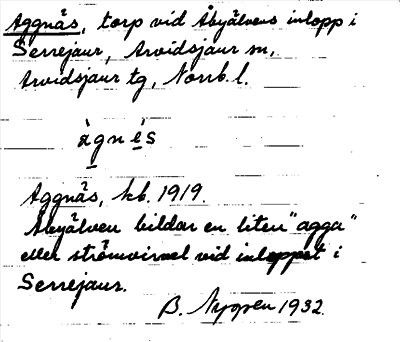 Aggnäs, torp vid Åbyälvens inlopp i
Serrejaur, Arvidsjaur sn,
Arvidsjaur tg, Norrb. l.
àgnés
Aggnäs, kb. 1919.
Åbyälven bildar en liten "agga"
eller strömvirvel vid inloppet i
Serrejaur.
B. Nygren 1932.